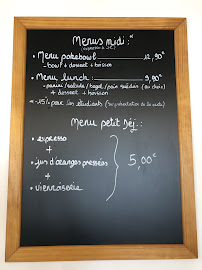 Menus midi :
• Menu pokebowl 12,90€
- bowl + dessert + boisson
• Menu lunch : 9,90€
- panini / salade / bagel / pain suédois (au choix)
+ dessert + boisson
-15% pour les étudiants (sur présentation de la carte)
Menu petit Déj :
• expresso
+
• jus d'oranges pressées
+
• viennoiserie
5,00€